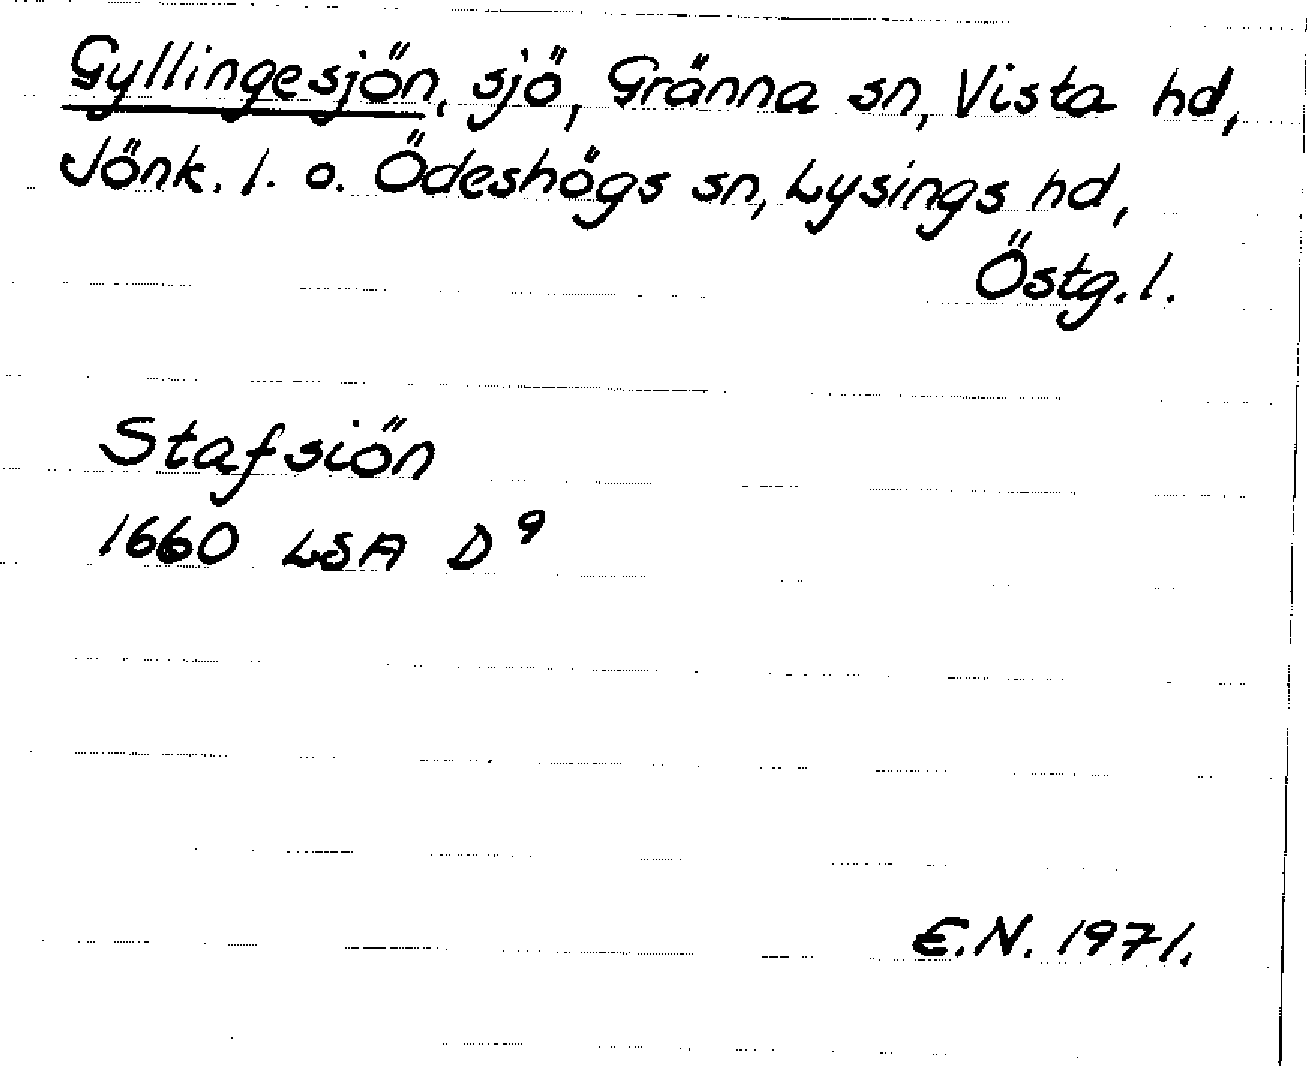 Gyllingesjön, sjö, Gränna sn, Vista hd,
Jönk. l. o. Ödeshögs sn, Lysings hd,
Östg. l.
Stafsiön
1660 LSA D⁹
E.N. 1971.